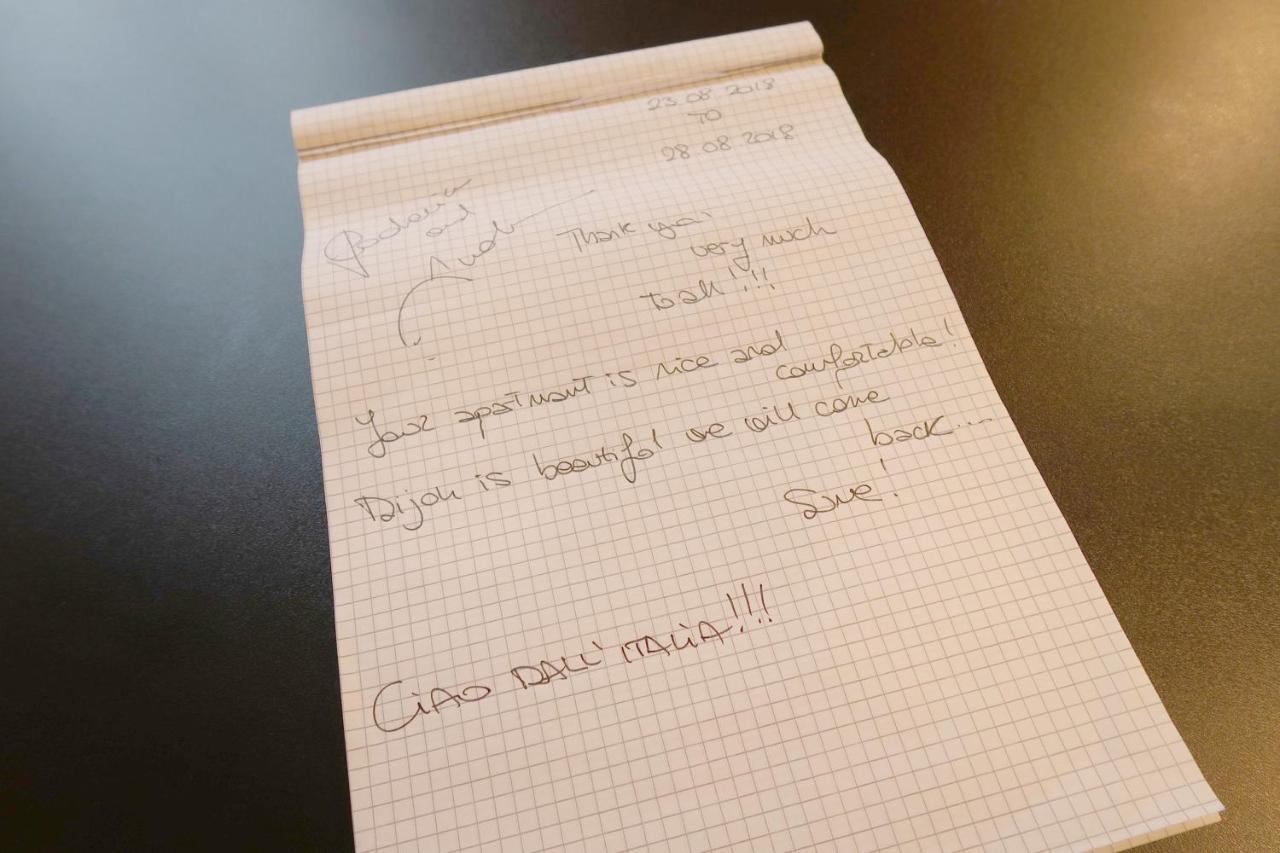 23.08.2018
TO
28.08.2018
and
Thank you
very much
to all!!!
Your apartmant is nice and
comfortable!
Dijon is beautiful we will come
back...
Sure!
CIAO DALL'ITALIA!!!